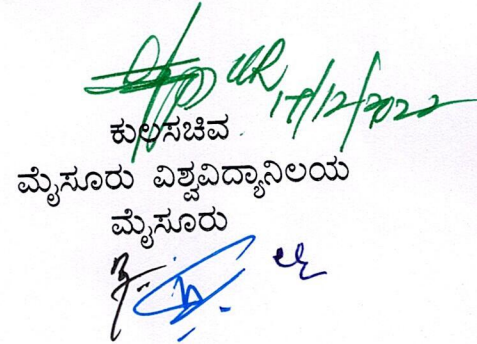 17/12/2022
ಕುಲಸಚಿವ
ಮೈಸೂರು ವಿಶ್ವವಿದ್ಯಾನಿಲಯ
ಮೈಸೂರು